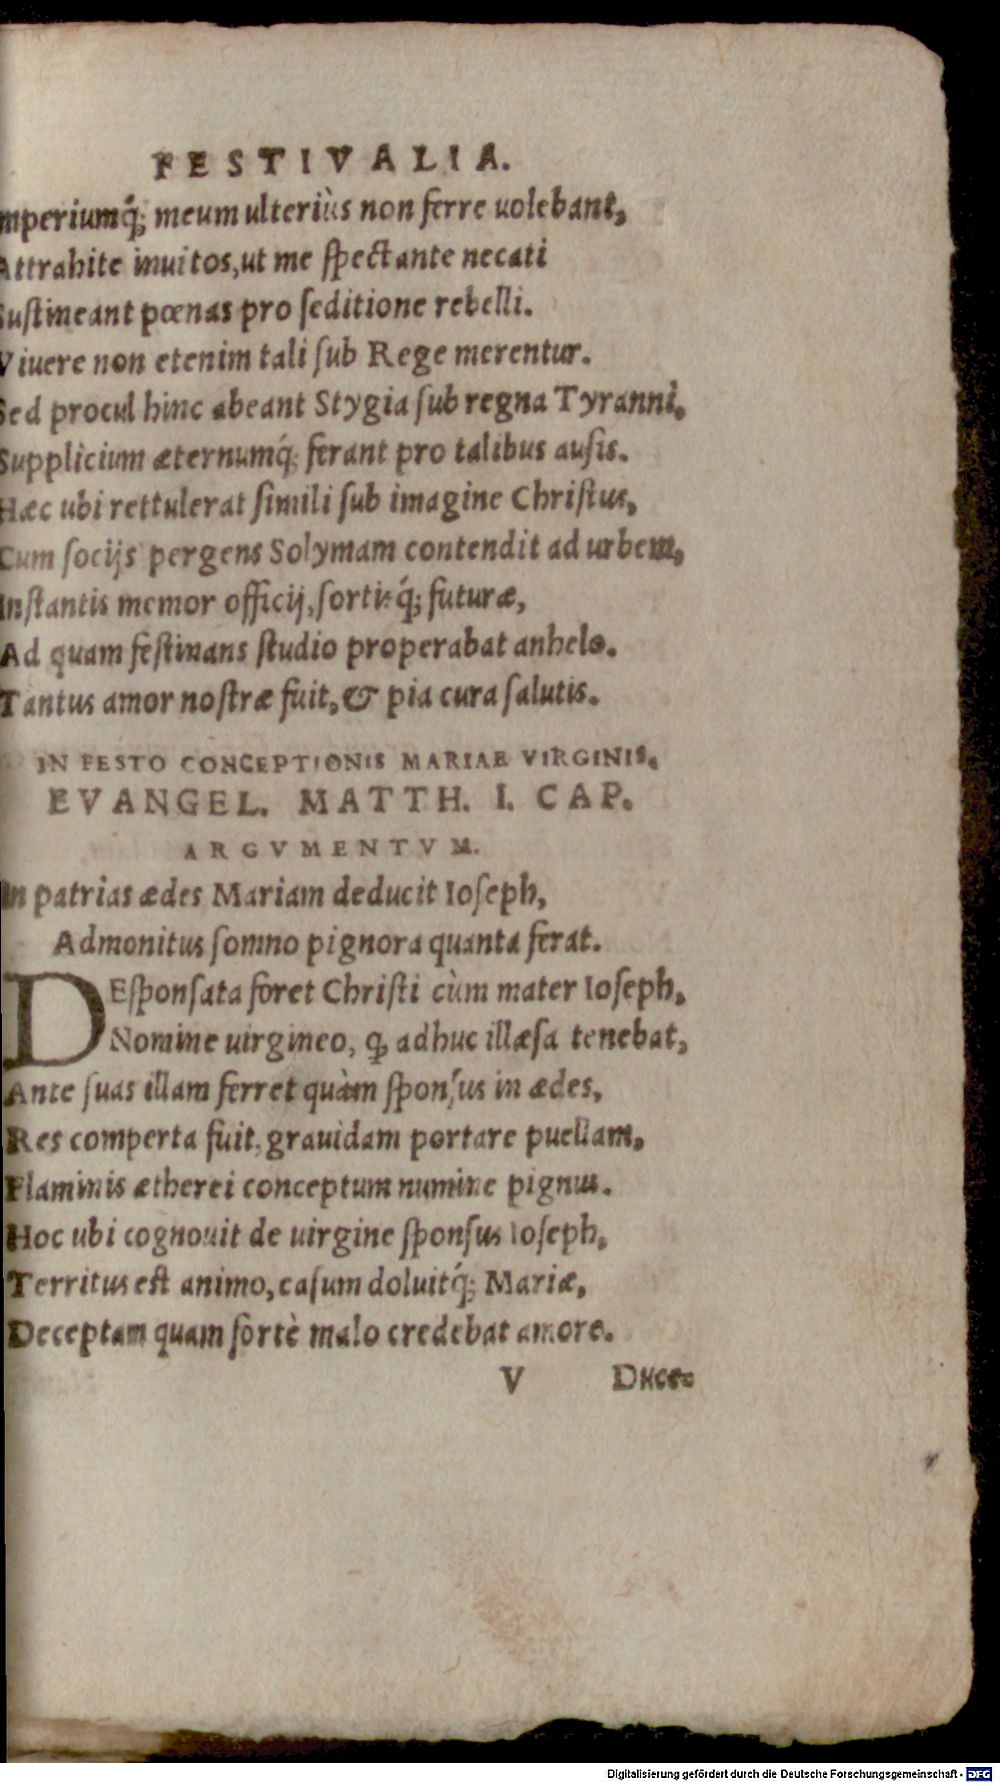 FESTIVALIA.
Imperiumq́; meum ulteriùs non ferre uolebant,
Attrahite inuitos, ut me spectante necati
Sustineant pœnas pro seditione rebelli.
Viuere non etenim tali sub Rege merentur.
Sed procul hinc abeant Stygia sub regna Tyranni,
Supplicium æternumq́; ferant pro talibus ausis.
Hæc ubi rettulerat simili sub imagine Christus,
Cum socijs pergens Solymam contendit ad urbem,
Instantis memor officij, sortisq́; futuræ,
Ad quam festinans studio properabat anhelo.
Tantus amor nostræ fuit, & pia cura salutis.
IN FESTO CONCEPTIONIS MARIAE VIRGINIS,
EVANGEL. MATTH. I. CAP.
ARGVMENTVM.
In patrias ædes Mariam deducit Ioseph,
Admonitus somno pignora quanta ferat.
DEsponsata foret Christi cùm mater Ioseph,
Nomine uirgineo, ꝙ adhuc illæsa tenebat,
Ante suas illam ferret quàm sponsus in ædes,
Res comperta fuit, grauidam portare puellam,
Flaminis ætherei conceptum numine pignus.
Hoc ubi cognouit de uirgine sponsus Ioseph,
Territus est animo, casum doluitq́; Mariæ,
Deceptam quam fortè malo credebat amore.
V Duce-
Digitalisierung gefördert durch die Deutsche Forschungsgemeinschaft - DFG